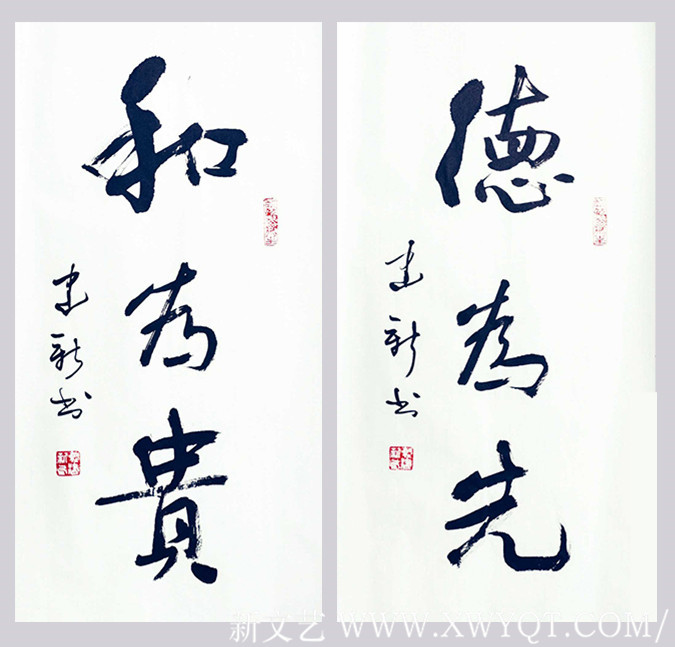 和為貴
建新书
德為先
建新书
新文艺 WWW.XWYQT.COM/